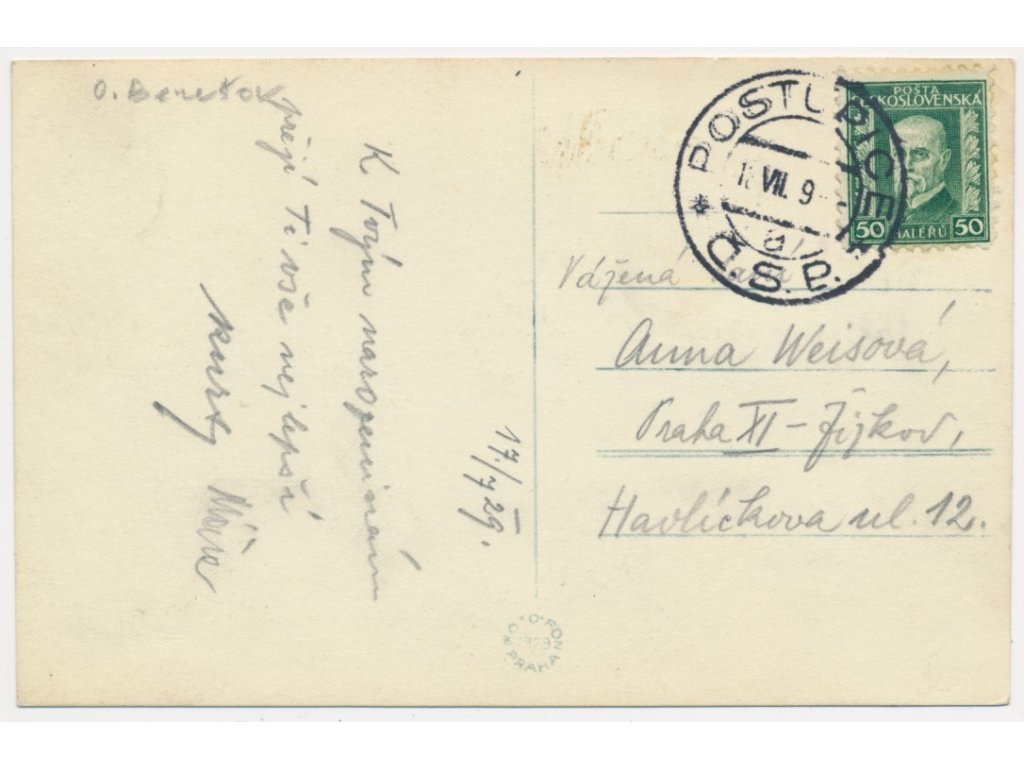 O. Benešov
K Tvým narozeninám
přeji Ti vše nejlepší
17./7 29.
POSTUPICE
1 VII. 9
Č.S.P.
POŠTA
ČESKOSLOVENSKÁ
50 HALÉŘŮ 50
Vážená
Anna Weisová,
Praha XI – Žižkov,
Havlíčkova ul. 12.
FON
PRAHA